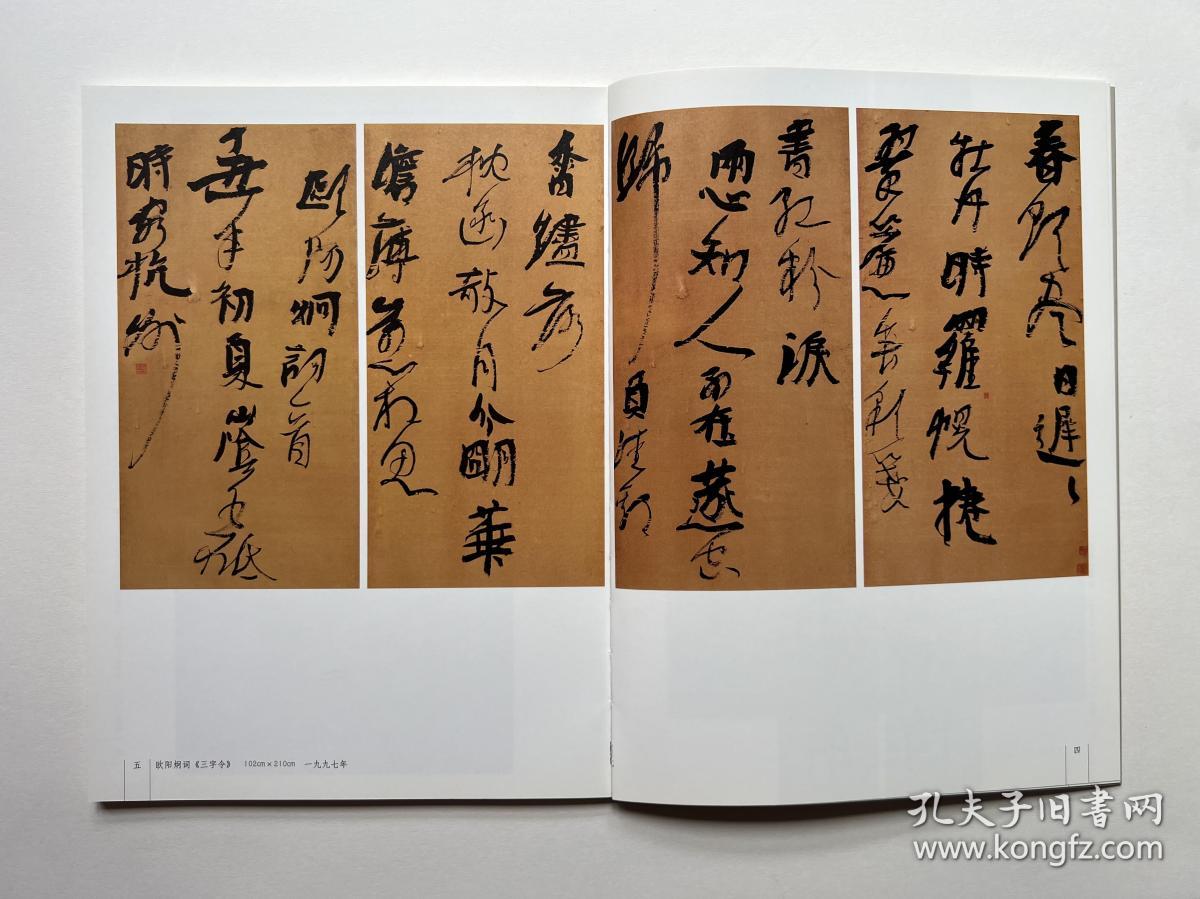 春欲尽日遲〻
牡丹時羅幌捲
翠簾垂彩箋
書紅粉淚
兩心知人不在燕空
歸負佳期
香燼落
枕函敧月分明華
澹薄惹相思
歐陽炯詞一首
年初夏
時客杭州
四
五 欧阳炯词《三字令》 102cm×210cm 一九九七年
孔夫子旧书网
www.kongfz.com